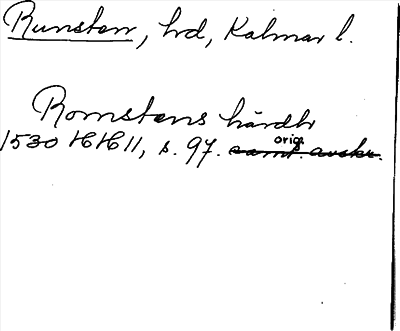 Runsten, hd, Kalmar l.
Romstens härdh
orig.
1530 HH 11, s. 97. samt. avskr.